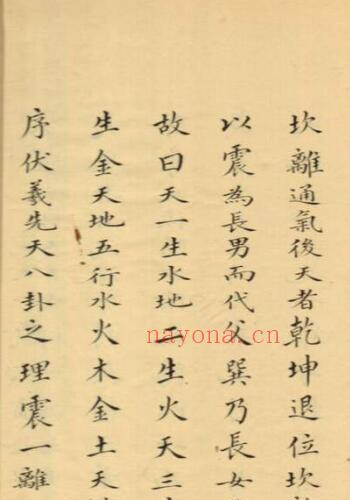 坎離通氣後天者乾坤退位坎
以震為長男而代父巽乃長女
故曰天一生水地二生火天三
生金天地五行水火木金土天
序伏羲先天八卦之理震一離
nayona.cn